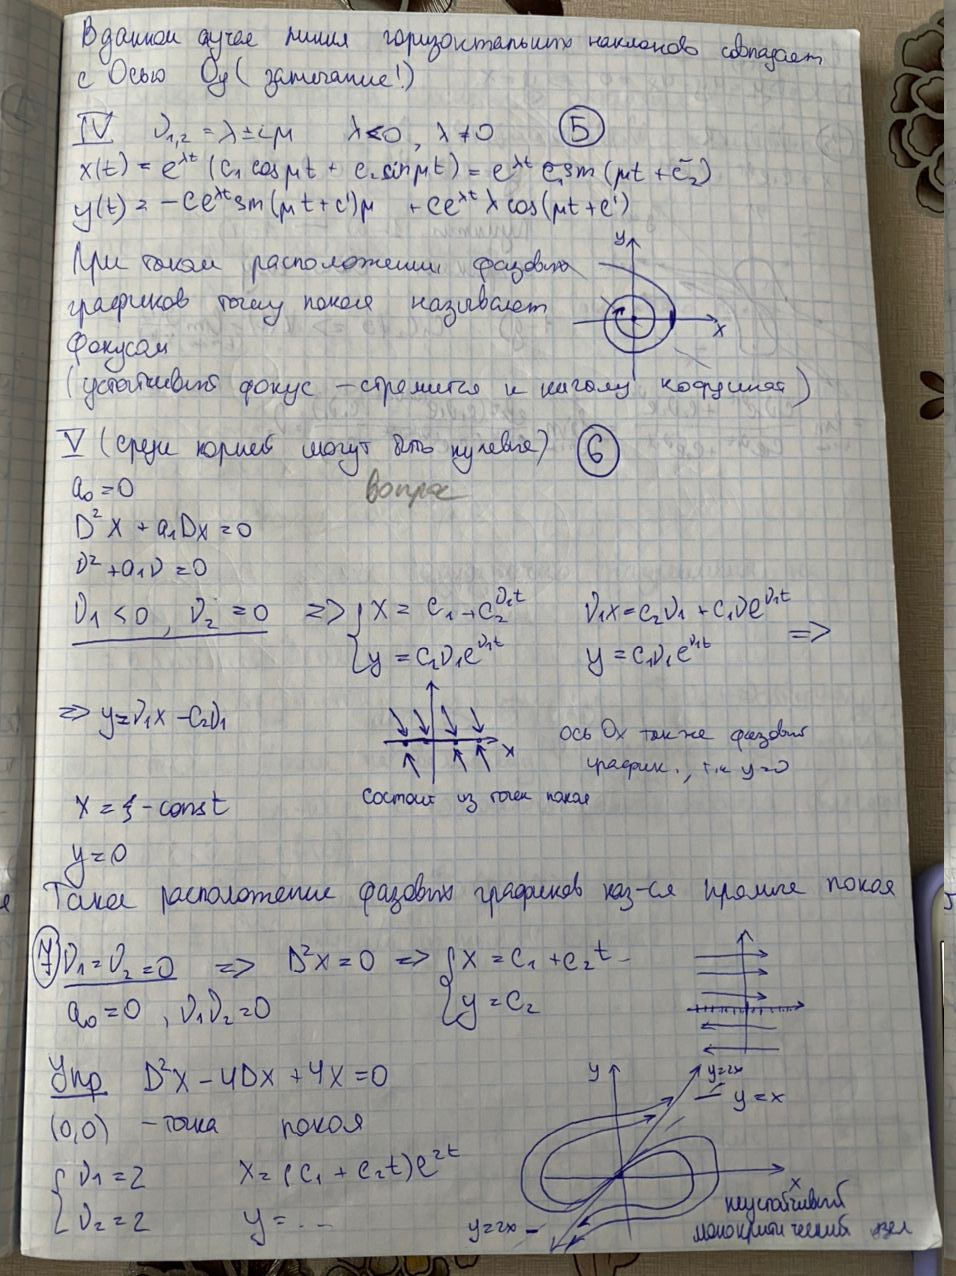 В данном случае линия горизонтальных наклонов совпадает
с Осью Oy (замечание!)
IV ν₁,₂ = λ ± iμ λ<0, λ ≠ 0 (5)
x(t) = e^{λt} (c₁ cos μt + c₂ sin μt) = e^{λt} c̃₁ sin (μt + c̃₂)
y(t) = -Ce^{λt} sin(μt+c')μ + Ce^{λt} λ cos(μt+c')
y
При таком расположении фазовых
графиков точку покоя называют
x
Фокусом
(устойчивый фокус – стремится к началу координат)
V (среди корней могут быть нулевые) (6)
a₀=0 вопрос
D²x + a₁Dx = 0
ν² + a₁ν = 0
ν₁ < 0, ν₂ = 0 => { x = c₁ + c₂^{ν₁t} ν₁x = c₂ν₁ + c₁νe^{ν₁t}
y = c₁ν₁e^{ν₁t} y = c₁ν₁e^{ν₁t} =>
=> y = ν₁x - c₂ν₁
x
ось Ox также фазовый
график, т.к y=0
состоит из точек покоя
x = ξ - const
y = 0
Такое расположение фазовых графиков наз-ся прямые покоя
(7) ν₁ = ν₂ = 0 => D²x = 0 => { x = c₁ + c₂t
a₀ = 0, ν₁ν₂ = 0 y = c₂
Упр D²x - 4Dx + 4x = 0
y y=2x
y = x
(0,0) - точка покоя
{ ν₁ = 2 x = (c₁ + c₂t)e^{2t}
ν₂ = 2 y = ...
x
y=2x
неустойчивый
монокритический узел